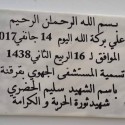 بسم الله الرحمان الرحيم
على بركة الله اليوم 14 جانفي 2017
الموافق لـ 16 ربيع الثاني 1438
تسمية المستشفى الجهوي بقرقنة
باسم الشهيد سليم الحضري
شهيد ثورة الحرية و الكرامة